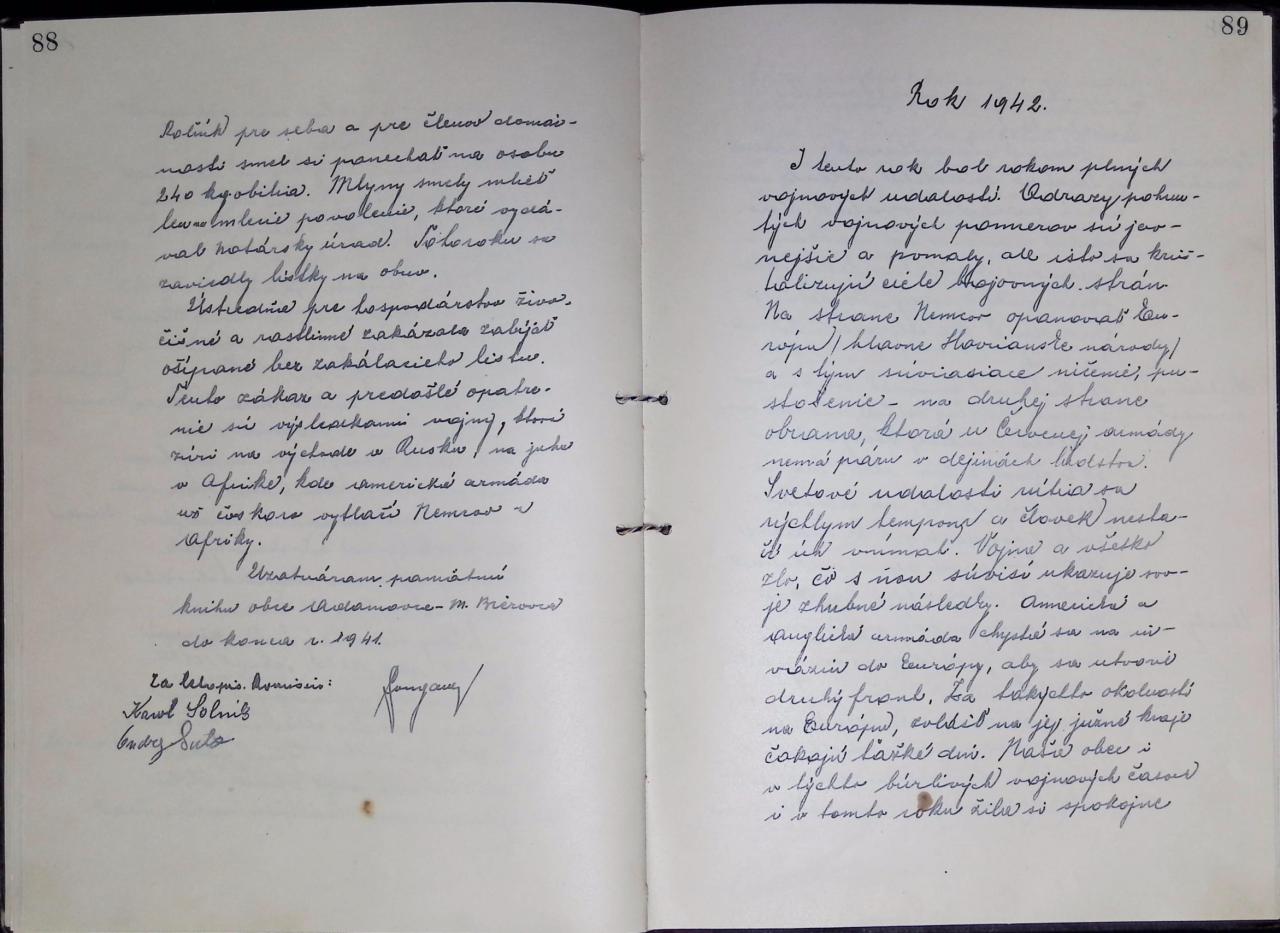 88
Roľník pre seba a pre členov domác-
nosti smel si ponechať na osobu
240 kg obilia. Mlyny smely mlieť
len na mlecie povolenie, ktoré vydá-
val Notársky úrad. Tohoroku sa
zaviedly lístky na obuv.
Ústredňa pre hospodárstvo živo-
čišné a rastlinné zakázala zabíjať
ošípané bez zakálacieho listu.
Tento zákaz a predošlé opatre-
nie sú výsledkami vojny, ktorá
zúri na východe v Rusku, na juhu
v Afrike, kde americká armáda
už čoskoro vytlačí Nemcov z
Afriky.
Uzatváram pamätnú
knihu obce Adamovce - M. Bierovce
do konca r. 1941.
Za letopis. komisiu:
Karol Solník
Ondrej Šuto
89
Rok 1942.
I tento rok bol rokom plných
vojnových udalostí. Odrazy pohnu-
tých vojnových pomerov sú jav-
nejšie a pomaly, ale isto sa kriš-
talizujú ciele bojovných strán.
Na strane Nemcov opanovať Eu-
rópu / hlavne Slavianske národy /
a s tým súvisiace ničenie, pu-
stošenie - na druhej strane
obrana, ktorá u Červenej armády
nemá páru v dejinách ľudstva.
Svetové udalosti rútia sa
rýchlym tempom a človek nesta-
čí ich vnímať. Vojna a všetko
zlo, čo s ňou súvisí ukazuje svo-
je zhubné následky. Americká a
anglická armáda chystá sa na in-
váziu do Európy, aby sa utvoril
druhý front. Za takýchto okolností
na Európu, zvlášť na jej južné kraje
čakajú ťažké dni. Naša obec i
v týchto búrlivých vojnových časoch
i v tomto roku žila si spokojne